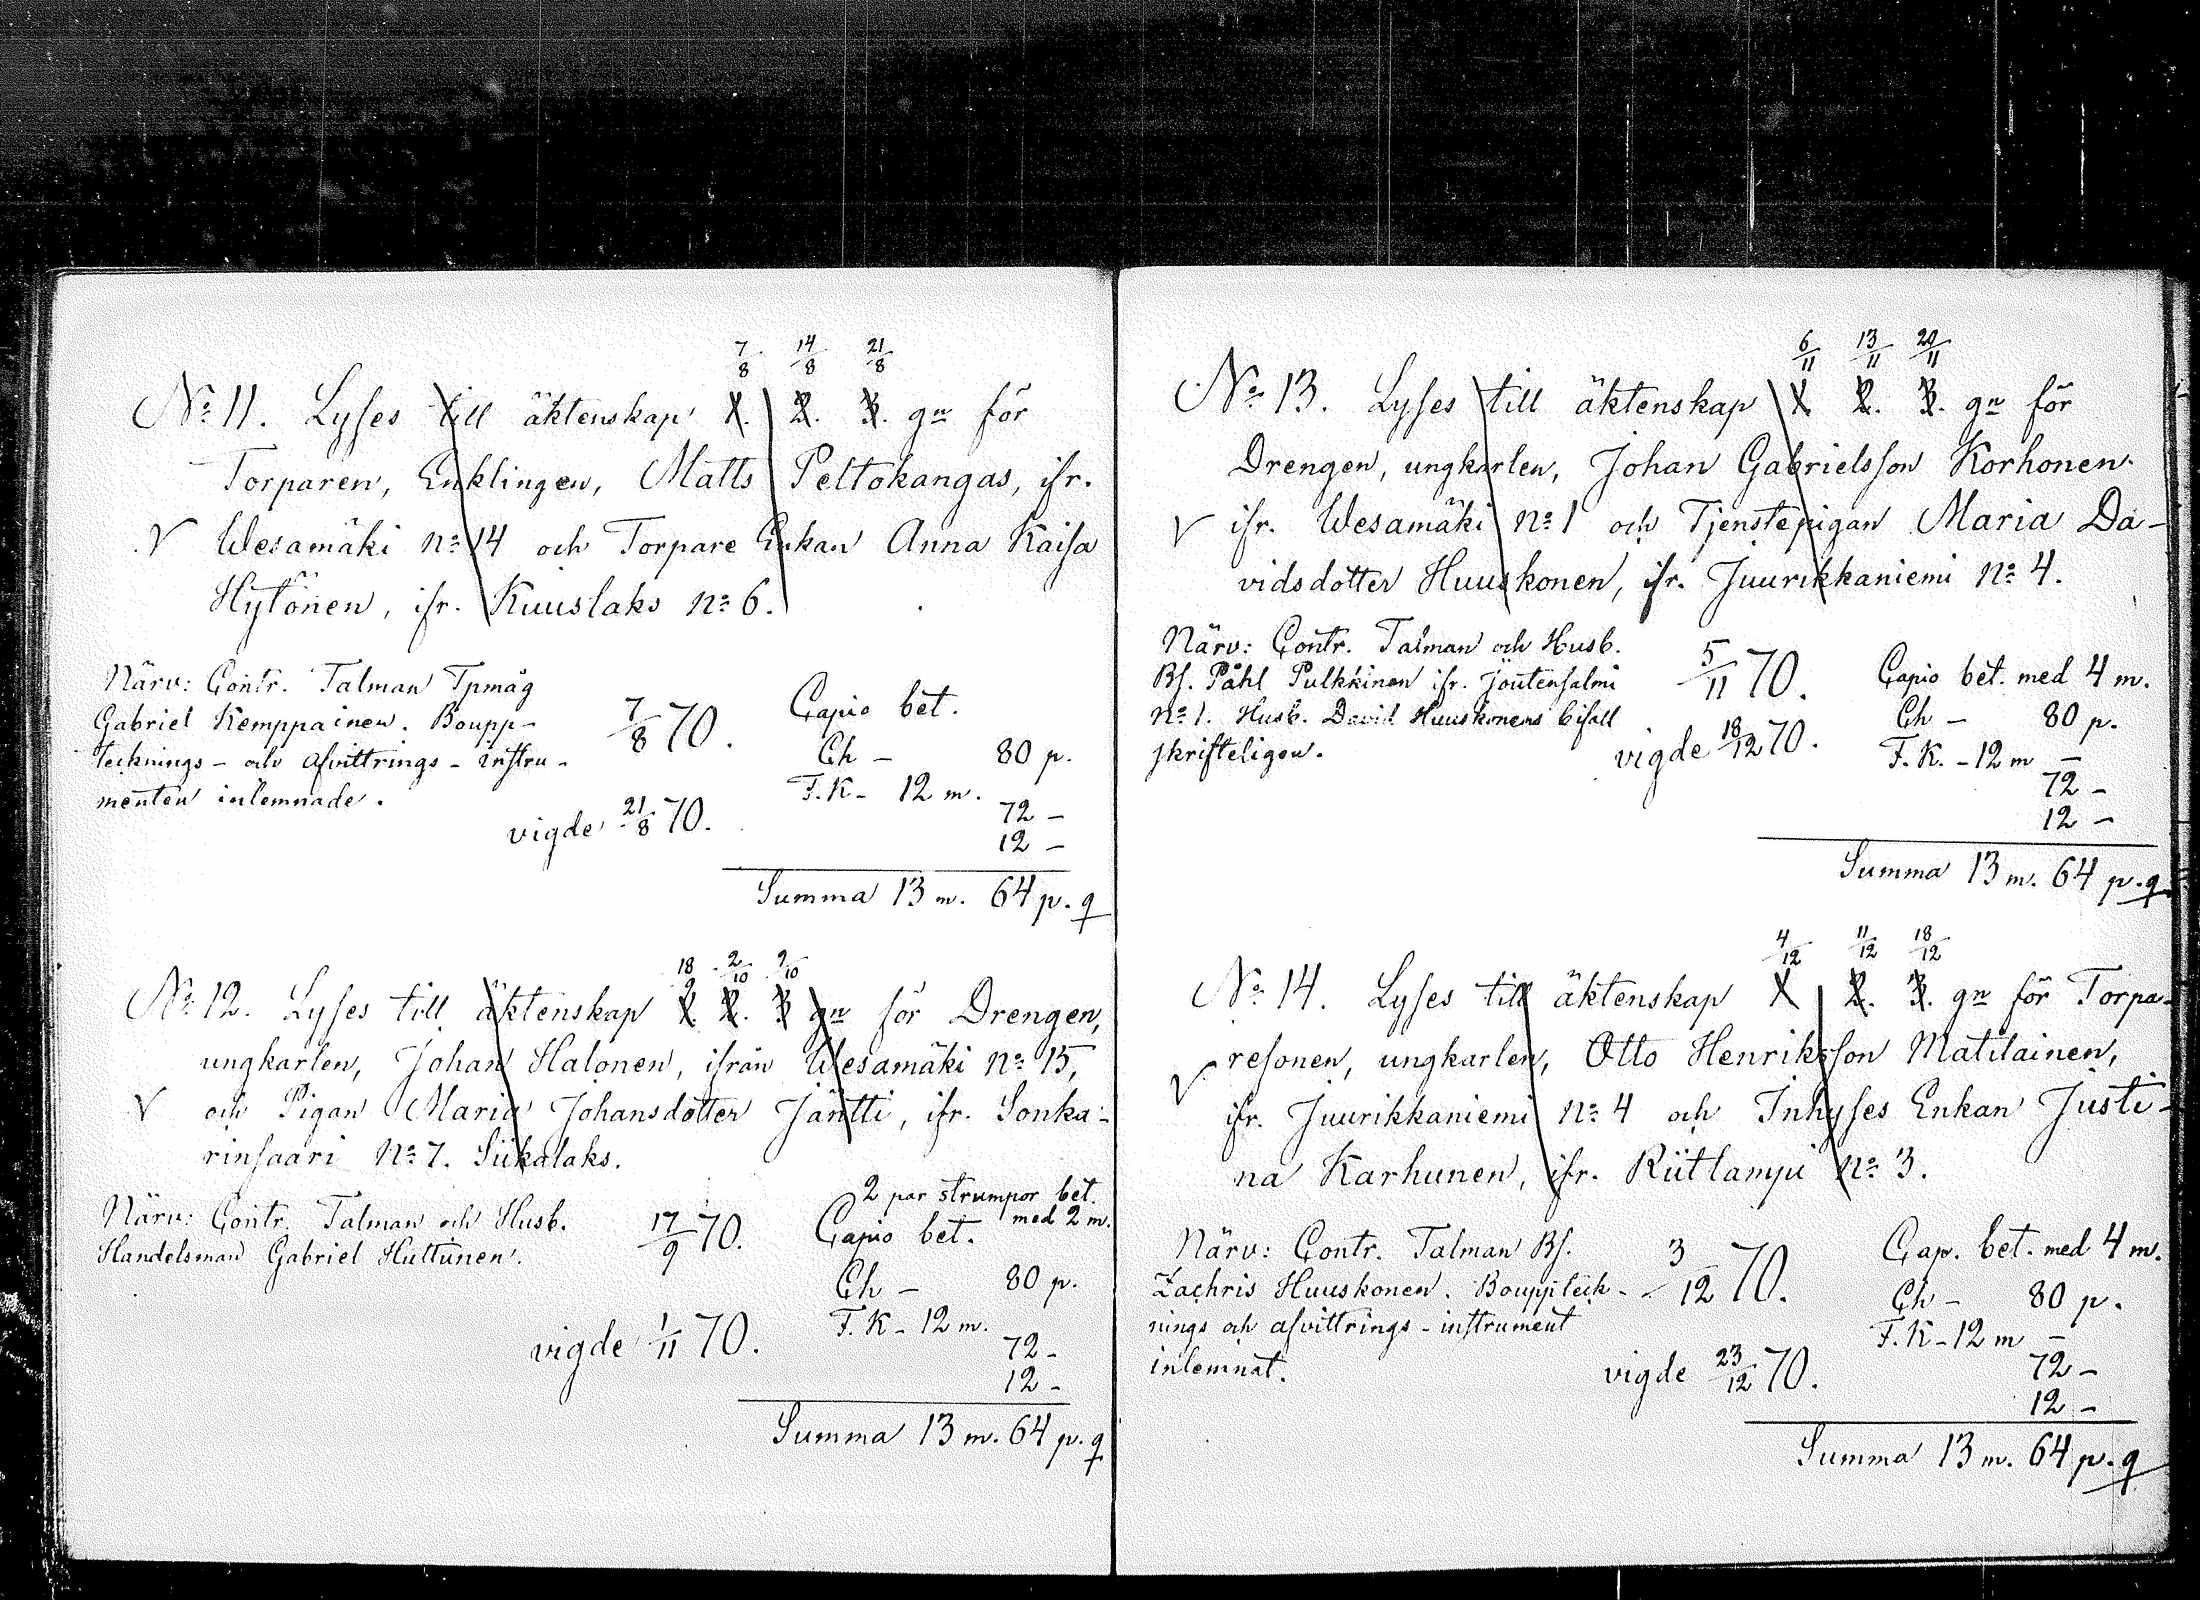 7/8 14/8 21/8
No 11. Lyses till äktenskap 1. 2. 3. gn för
Torparen, Enklingen, Matts Peltokangas, ifr.
V Wesamäki No 14 och Torpare Enkan Anna Kaisa
Hytönen, ifr. Kuuslaks No 6.
Närv: Contr. Talman Tpmåg
Gabriel Kemppainen. Boupp-
tecknings- och afvittrings-instru-
menten inlemnade.
7/8 70.
vigde 21/8 70.
Capio bet.
Ch – 80 p.
F. K – 12 m.
72 –
12 –
Summa 13 m. 64 p. q
18/9 2/10 9/10
No 12. Lyses till äktenskap 1. 2. 3 gn för Drengen,
ungkarlen, Johan Halonen, ifrån Wesamäki No 15,
V och Pigan Maria Johansdotter Jäntti, ifr. Sonka-
rinsaari No 7. Siikalaks.
Närv: Contr. Talman och Husb.
Handelsman Gabriel Huttunen.
17/9 70.
vigde 1/11 70.
2 par strumpor bet.
med 2 m.
Capio bet.
Ch – 80 p.
F. K – 12 m.
72 –
12 –
Summa 13 m. 64 p. q
6/11 13/11 20/11
No 13. Lyses till äktenskap 1. 2. 3. gn för
Drengen, ungkarlen, Johan Gabrielsson Korhonen
V ifr. Wesamäki No 1 och Tjenstepigan Maria Da-
vidsdotter Huuskonen, ifr. Juurikkaniemi No 4.
Närv: Contr. Talman och Husb.
Bs. Påhl Pulkkinen ifr. Joutensalmi
No 1. Husb. David Huuskonens bifall
skrifteligen.
5/11 70.
vigde 18/12 70.
Capio bet. med 4 m.
Ch – 80 p.
F. K. – 12 m –
72 –
12 –
Summa 13 m. 64 p. q
4/12 11/12 18/12
No 14. Lyses till äktenskap 1 2. 3. gn för Torpa-
resonen, ungkarlen, Otto Henriksson Matilainen,
V ifr. Juurikkaniemi No 4 och Inhyses Enkan Justi-
na Karhunen, ifr. Riitlampi No 3.
Närv: Contr. Talman Bs.
Zachris Huuskonen. Bouppteck-
nings och afvittrings-instrument
inlemnat.
3/12 70.
vigde 23/12 70.
Cap. bet. med 4 m.
Ch – 80 p.
F. K – 12 m –
72 –
12 –
Summa 13 m. 64 p. q